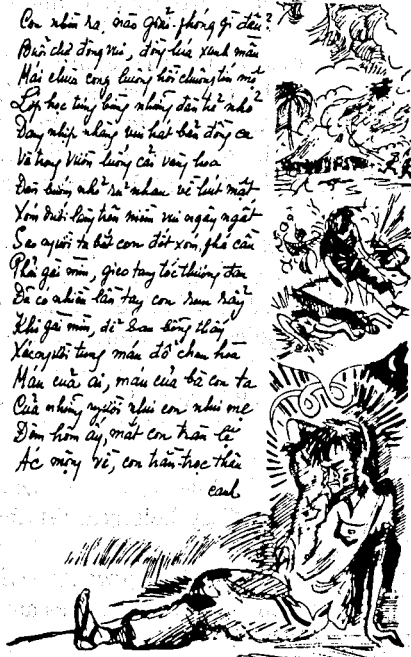 Con nhìn ra, nào giải-phóng gì đâu?
Buổi chợ đông vui, đồng lúa xanh mầu
Mái chùa cong buông hồi chuông tín mộ
Lớp học tưng bừng những đàn trẻ nhỏ
Đang nhịp nhàng vui hát bản đồng ca
Và trong vườn luống cải vàng hoa
Đàn bướm nhỏ rủ nhau về hút mật
Xóm dưới làng trên niềm vui ngây ngất
Sao người ta bắt con đốt xóm, phá cầu
Phải gài mìn, gieo tang tóc thương đau
Đã có nhiều lần tay con run rẩy
Khi gài mìn, để sau bỗng thấy
Xác người tung máu đổ chan hòa
Máu của ai, máu của bà con ta
Của những người như con như mẹ
Đêm hôm ấy, mắt con tràn lệ
Ác mộng về, con trằn-trọc thâu
canh